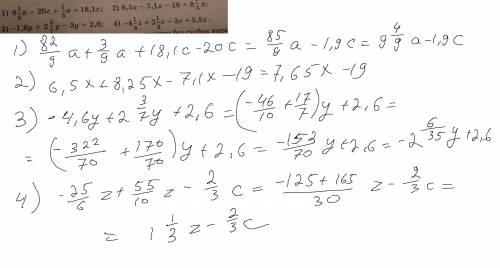 1) 9 1/9 a − 20c + 1/3 a + 18,1c; 2) 6,5x − 7,1x − 19 + 8 1/4 x;
3) −1,6y + 2 3/7 y − 3y + 2,6; 4) −4 1/6 z + 2 1/3 c − 3c + 5,5z.
1) 82/9 a + 3/9 a + 18,1c − 20c = 85/9 a − 1,9c = 9 4/9 a − 1,9c
2) 6,5x + 8,25x − 7,1x − 19 = 7,65x − 19
3) −4,6y + 2 3/7 y + 2,6 = (−46/10 + 17/7)y + 2,6 =
= (−322/70 + 170/70)y + 2,6 = −153/70 y + 2,6 = −2 6/35 y + 2,6
4) −25/6 z + 55/10 z − 2/3 c = −125+165/30 z − 2/3 c =
= 1 1/3 z − 2/3 c